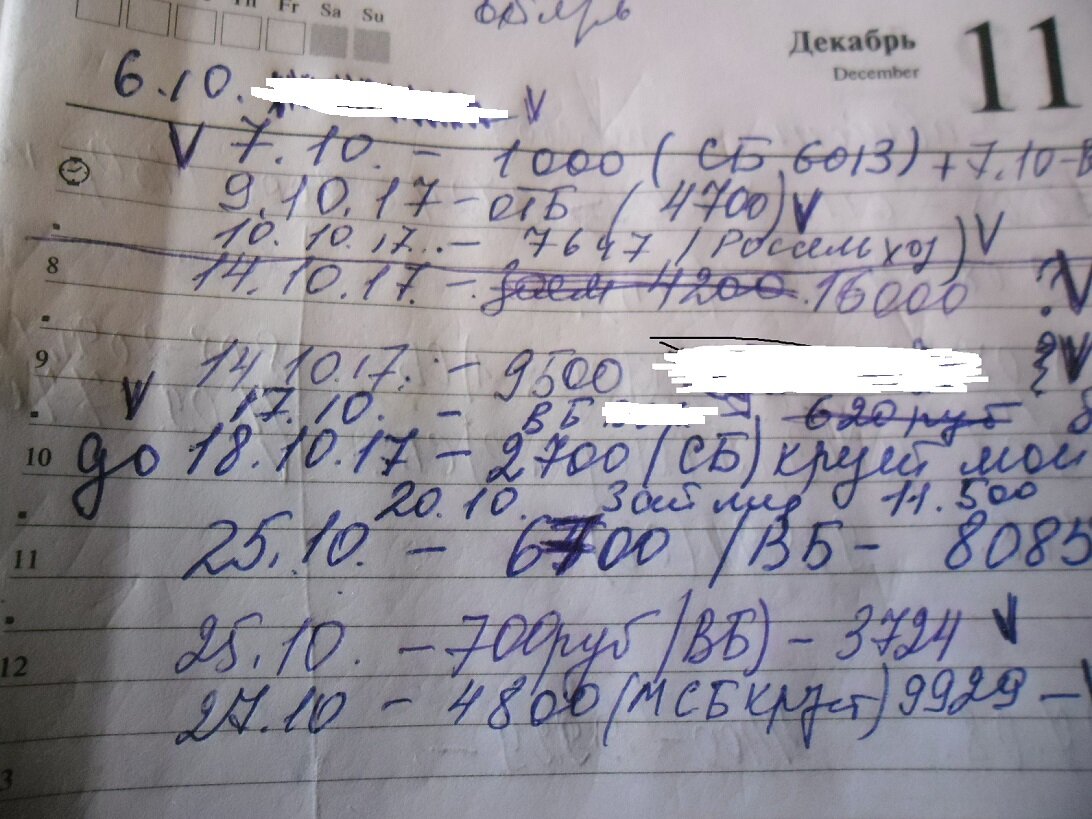 Fr Sa Su
Декабрь 11
December
6.10. V
V 7.10. - 1000 (СБ 6013) + 7.10-В
9.10.17 - ОТБ (4700) V
10.10.17. - 7647 (Россельхоз) V
8 14.10.17. - заем 4200. 16000 ? V
9 14.10.17. - 9500 V
V 17.10. - ВБ 620 руб
10 до 18.10.17 - 2700 (СБ) круит мой
20.10. 11.500
11 25.10. - 6700 /ВБ - 8085
25.10. - 700руб /ВБ) - 3724 V
12
27.10 - 4800 (МСБ круит) 9929 -
3